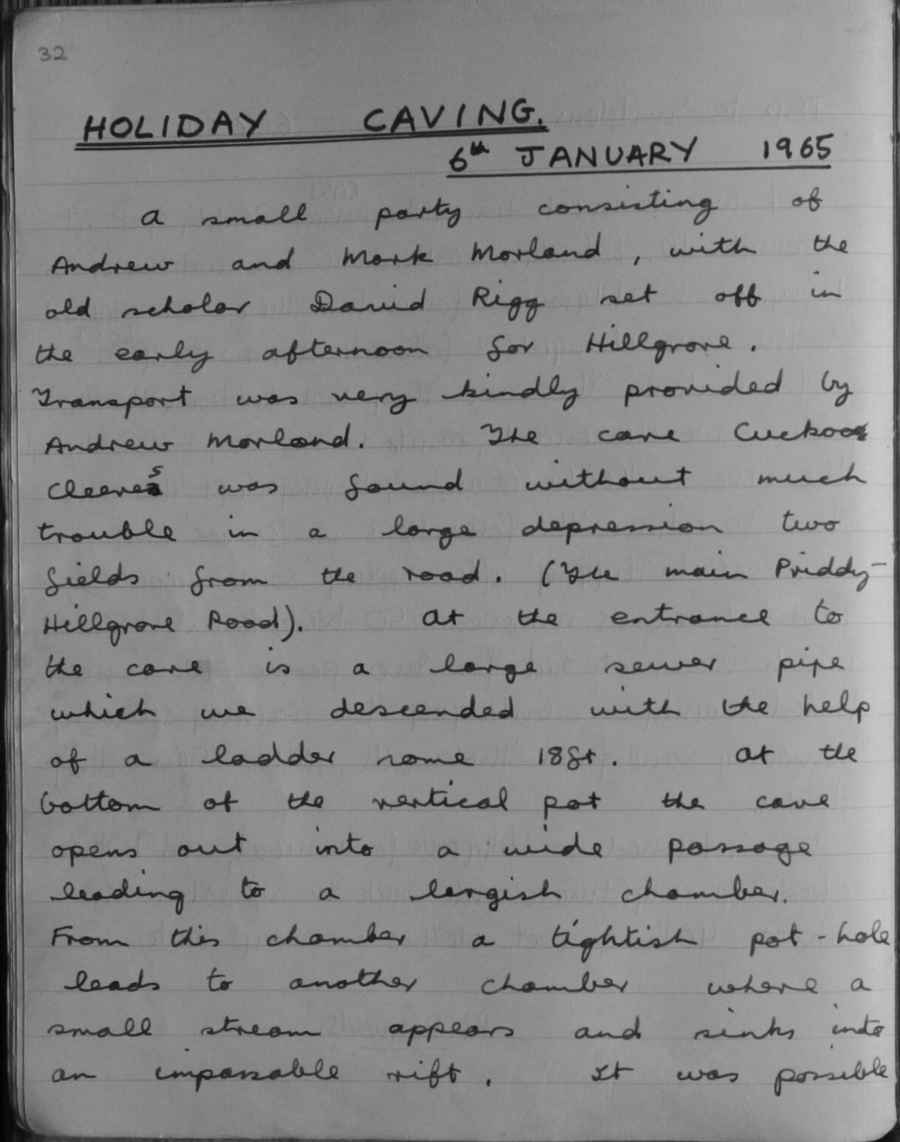 32
HOLIDAY CAVING.
6th JANUARY 1965
A small party consisting of
Andrew and Mark Morland, with the
old scholar David Rigg set off in
the early afternoon for Hillgrove.
Transport was very kindly provided by
Andrew Morland. The cave Cuckoo
Cleeves was found without much
trouble in a large depression two
fields from the road. (The main Priddy-
Hillgrove Road). At the entrance to
the cave is a large sewer pipe
which we descended with the help
of a ladder some 18ft. At the
bottom of the vertical pot the cave
opens out into a wide passage
leading to a largish chamber.
From this chamber a tightish pot-hole
leads to another chamber where a
small stream appears and sinks into
an impassable rift. It was possible